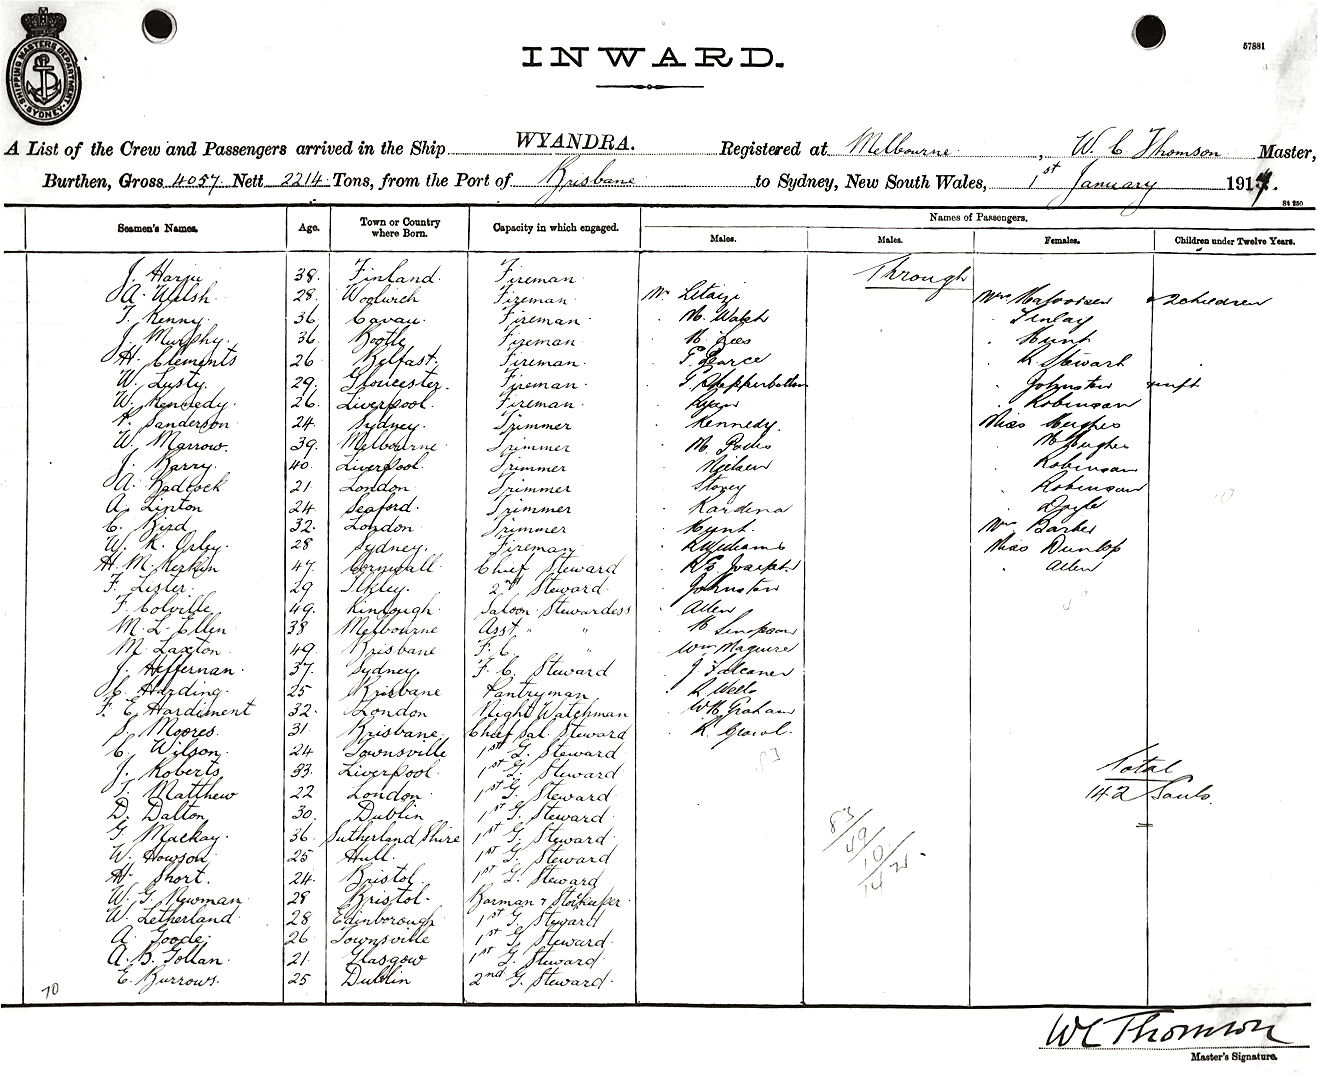 SHIPPING MASTERS DEPARTMENT SYDNEY
57881
INWARD.
A List of the Crew and Passengers arrived in the Ship WYANDRA. Registered at Melbourne, W. C Thomson Master,
Burthen, Gross 4057 Nett 2214 Tons, from the Port of Brisbane to Sydney, New South Wales, 1st January 1914.
Names of Passengers.
Seamen's Names. Age. Town or Country where Born. Capacity in which engaged. Males. Males. Females. Children under Twelve Years.
J. Harju 38. Finland. Fireman Through
A. Welsh 28. Woolwich Fireman Mr Mrs 2 children
T. Kenny. 36 Cavan. Fireman M. Walsh Finlay
J. Murphy. 36 Bootle Fireman M. Lees Hunt
H. Clements 26 Belfast. Fireman Pearce R Stewart
W. Lusty. 29. Gloucester. Fireman Johnston
W. Kennedy. 26. Liverpool. Fireman Ryan Robinson
Sanderson 24. Sydney. Trimmer Kennedy. Miss Hughes
W. Marrow. 39. Melbourne Trimmer M. Hughes
J. Barry. 40. Liverpool. Trimmer Nielsen Robinson
A. Badcock 21. London Trimmer Storey Robinson
A. Linton 24 Seaford. Trimmer Kardina Doyle
C. Bird 32. London Trimmer Hunt. Barber
W. R. Oxley. 28 Sydney. Fireman R Williams Miss Dunlop
H. M. 47 Cornwall. Chief Steward Allen
F. Lister. 29 Ilkley. 2nd Steward. Johnston
F. Colville 49. Saloon Stewardess Allen
M. L. Ellen 38 Melbourne Asst " " Simpson
M. Laxton 49. Brisbane F. C. " Wm Maguire
J. Heffernan. 37. Sydney. F. C. Steward J Falconer
C. Harding. 25 Brisbane Pantryman R Wells
F. E. Hardiment 32. London Night Watchman W H Graham
S. Moores. 31. Brisbane Chief Sal. Steward
C. Wilson. 24 Townsville 1st G. Steward
J. Roberts 33. Liverpool. 1st G. Steward Total
T. Matthew 22 London 1st G. Steward 142 Souls.
D. Dalton 30. Dublin 1st G. Steward
G. Mackay. 36. Sutherland Shire 1st G. Steward 83
W. Howson 25 Hull. 1st G. Steward 49
H. Short. 24. Bristol. 1st G. Steward 10
W. G. Newman 28 Bristol. Barman & Storekeeper 142
W. Letherland 28 Edinborough 1st G. Steward
A. Goode. 26 Townsville 1st G. Steward
A. B. Gollan. 21. Glasgow 1st G. Steward.
E. Burrows. 25 Dublin 2nd G. Steward.
70
W C Thomson
Master's Signature.